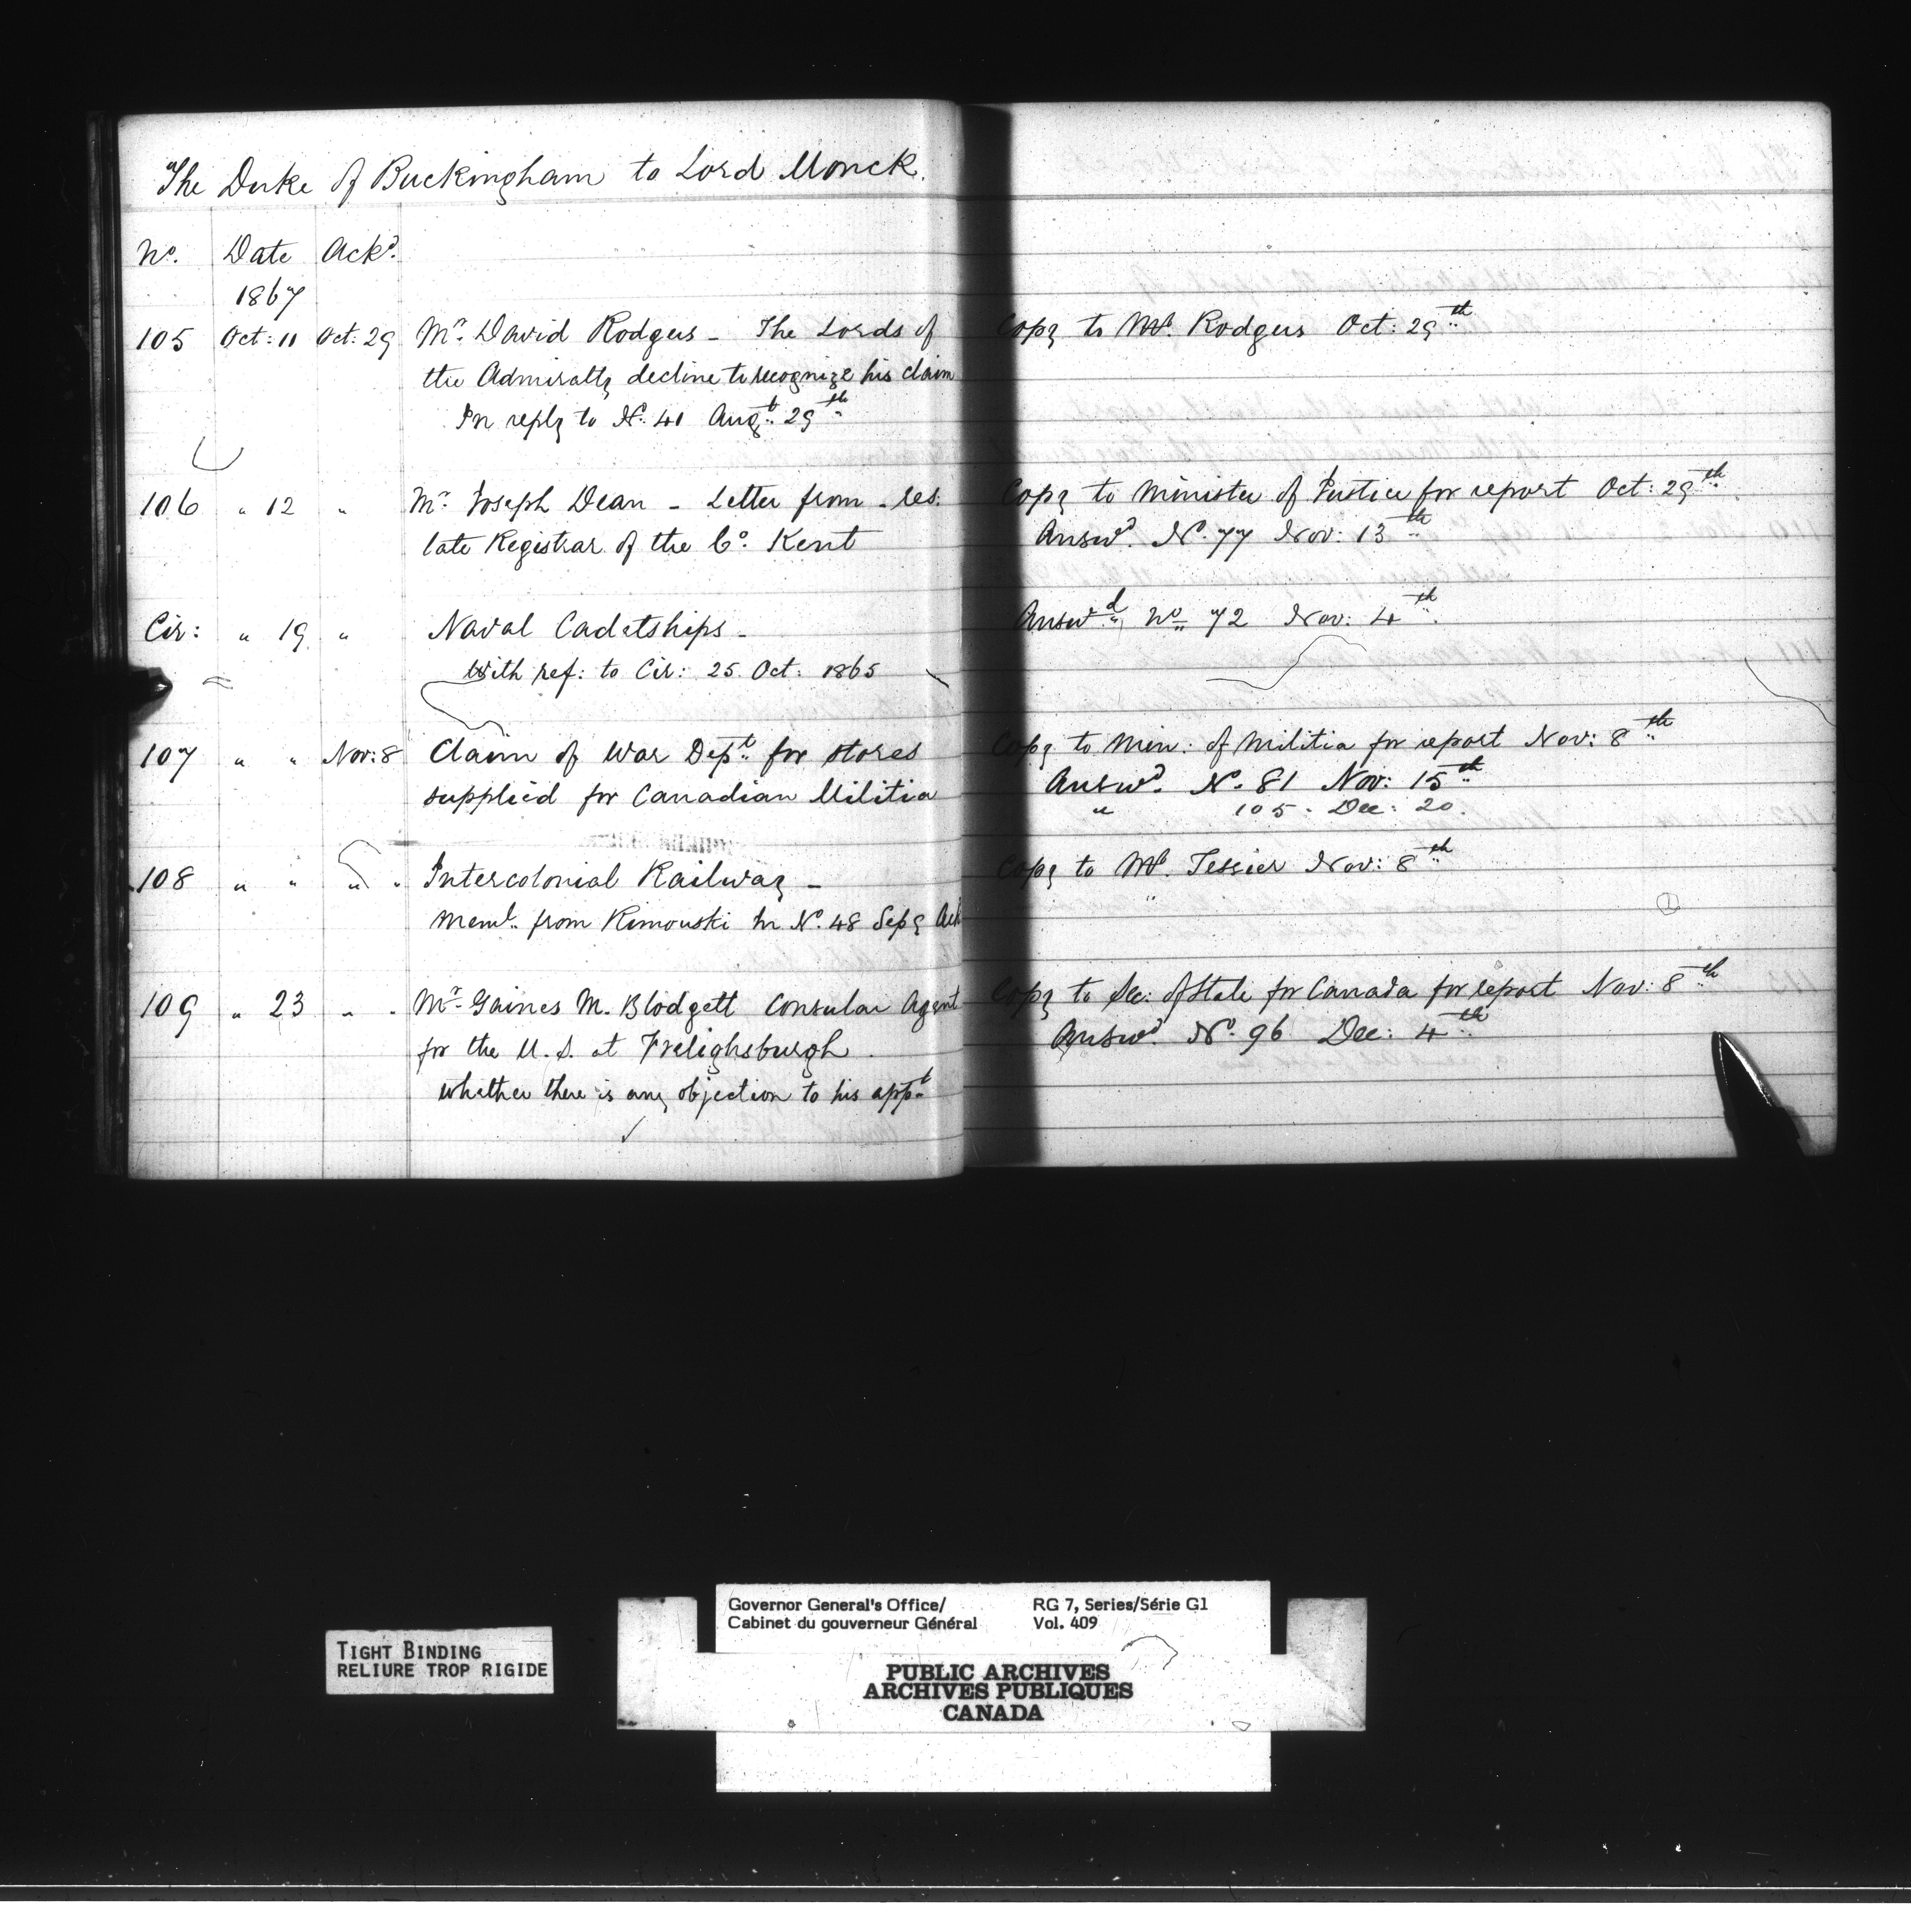 The Duke of Buckingham to Lord Monck.
No. Date Ackd.
1867
105 Oct: 11 Oct: 29 Mr. David Rodgers - The Lords of
the Admiralty decline to recognize his claim
In reply to No. 41 Augt. 29th
106 " 12 " Mr. Joseph Dean - Letter from - res.
late Registrar of the Co. Kent
Cir: " 19 " Naval Cadetships -
With ref: to Cir: 25 Oct: 1865
107 " " Nov: 8 Claim of War Dept. for stores
supplied for Canadian Militia
108 " " " Intercolonial Railway -
Meml. from Rimouski In No. 48 Sep 9 Ack
109 " 23 " Mr. Gaines M. Blodgett Consular Agent
for the U.S. at Frelighsburgh.
Whether there is any objection to his appt.
Copy to Mr. Rodgers Oct: 29th
Copy to Minister of Justice for report Oct: 29th.
Answd. No. 77 Nov: 13th
Answd. No. 72 Nov: 4th.
Copy to Min: of Militia for report Nov: 8th
Answd. No. 81 Nov: 15th
" 105 - Dec: 20.
Copy to Mr. Tessier Nov: 8th
Copy to Sec: of State for Canada for report Nov: 8th
Answd. No. 96 Dec: 4th
TIGHT BINDING
RELIURE TROP RIGIDE
Governor General's Office/ RG 7, Series/Série G1
Cabinet du gouverneur Général Vol. 409
PUBLIC ARCHIVES
ARCHIVES PUBLIQUES
CANADA